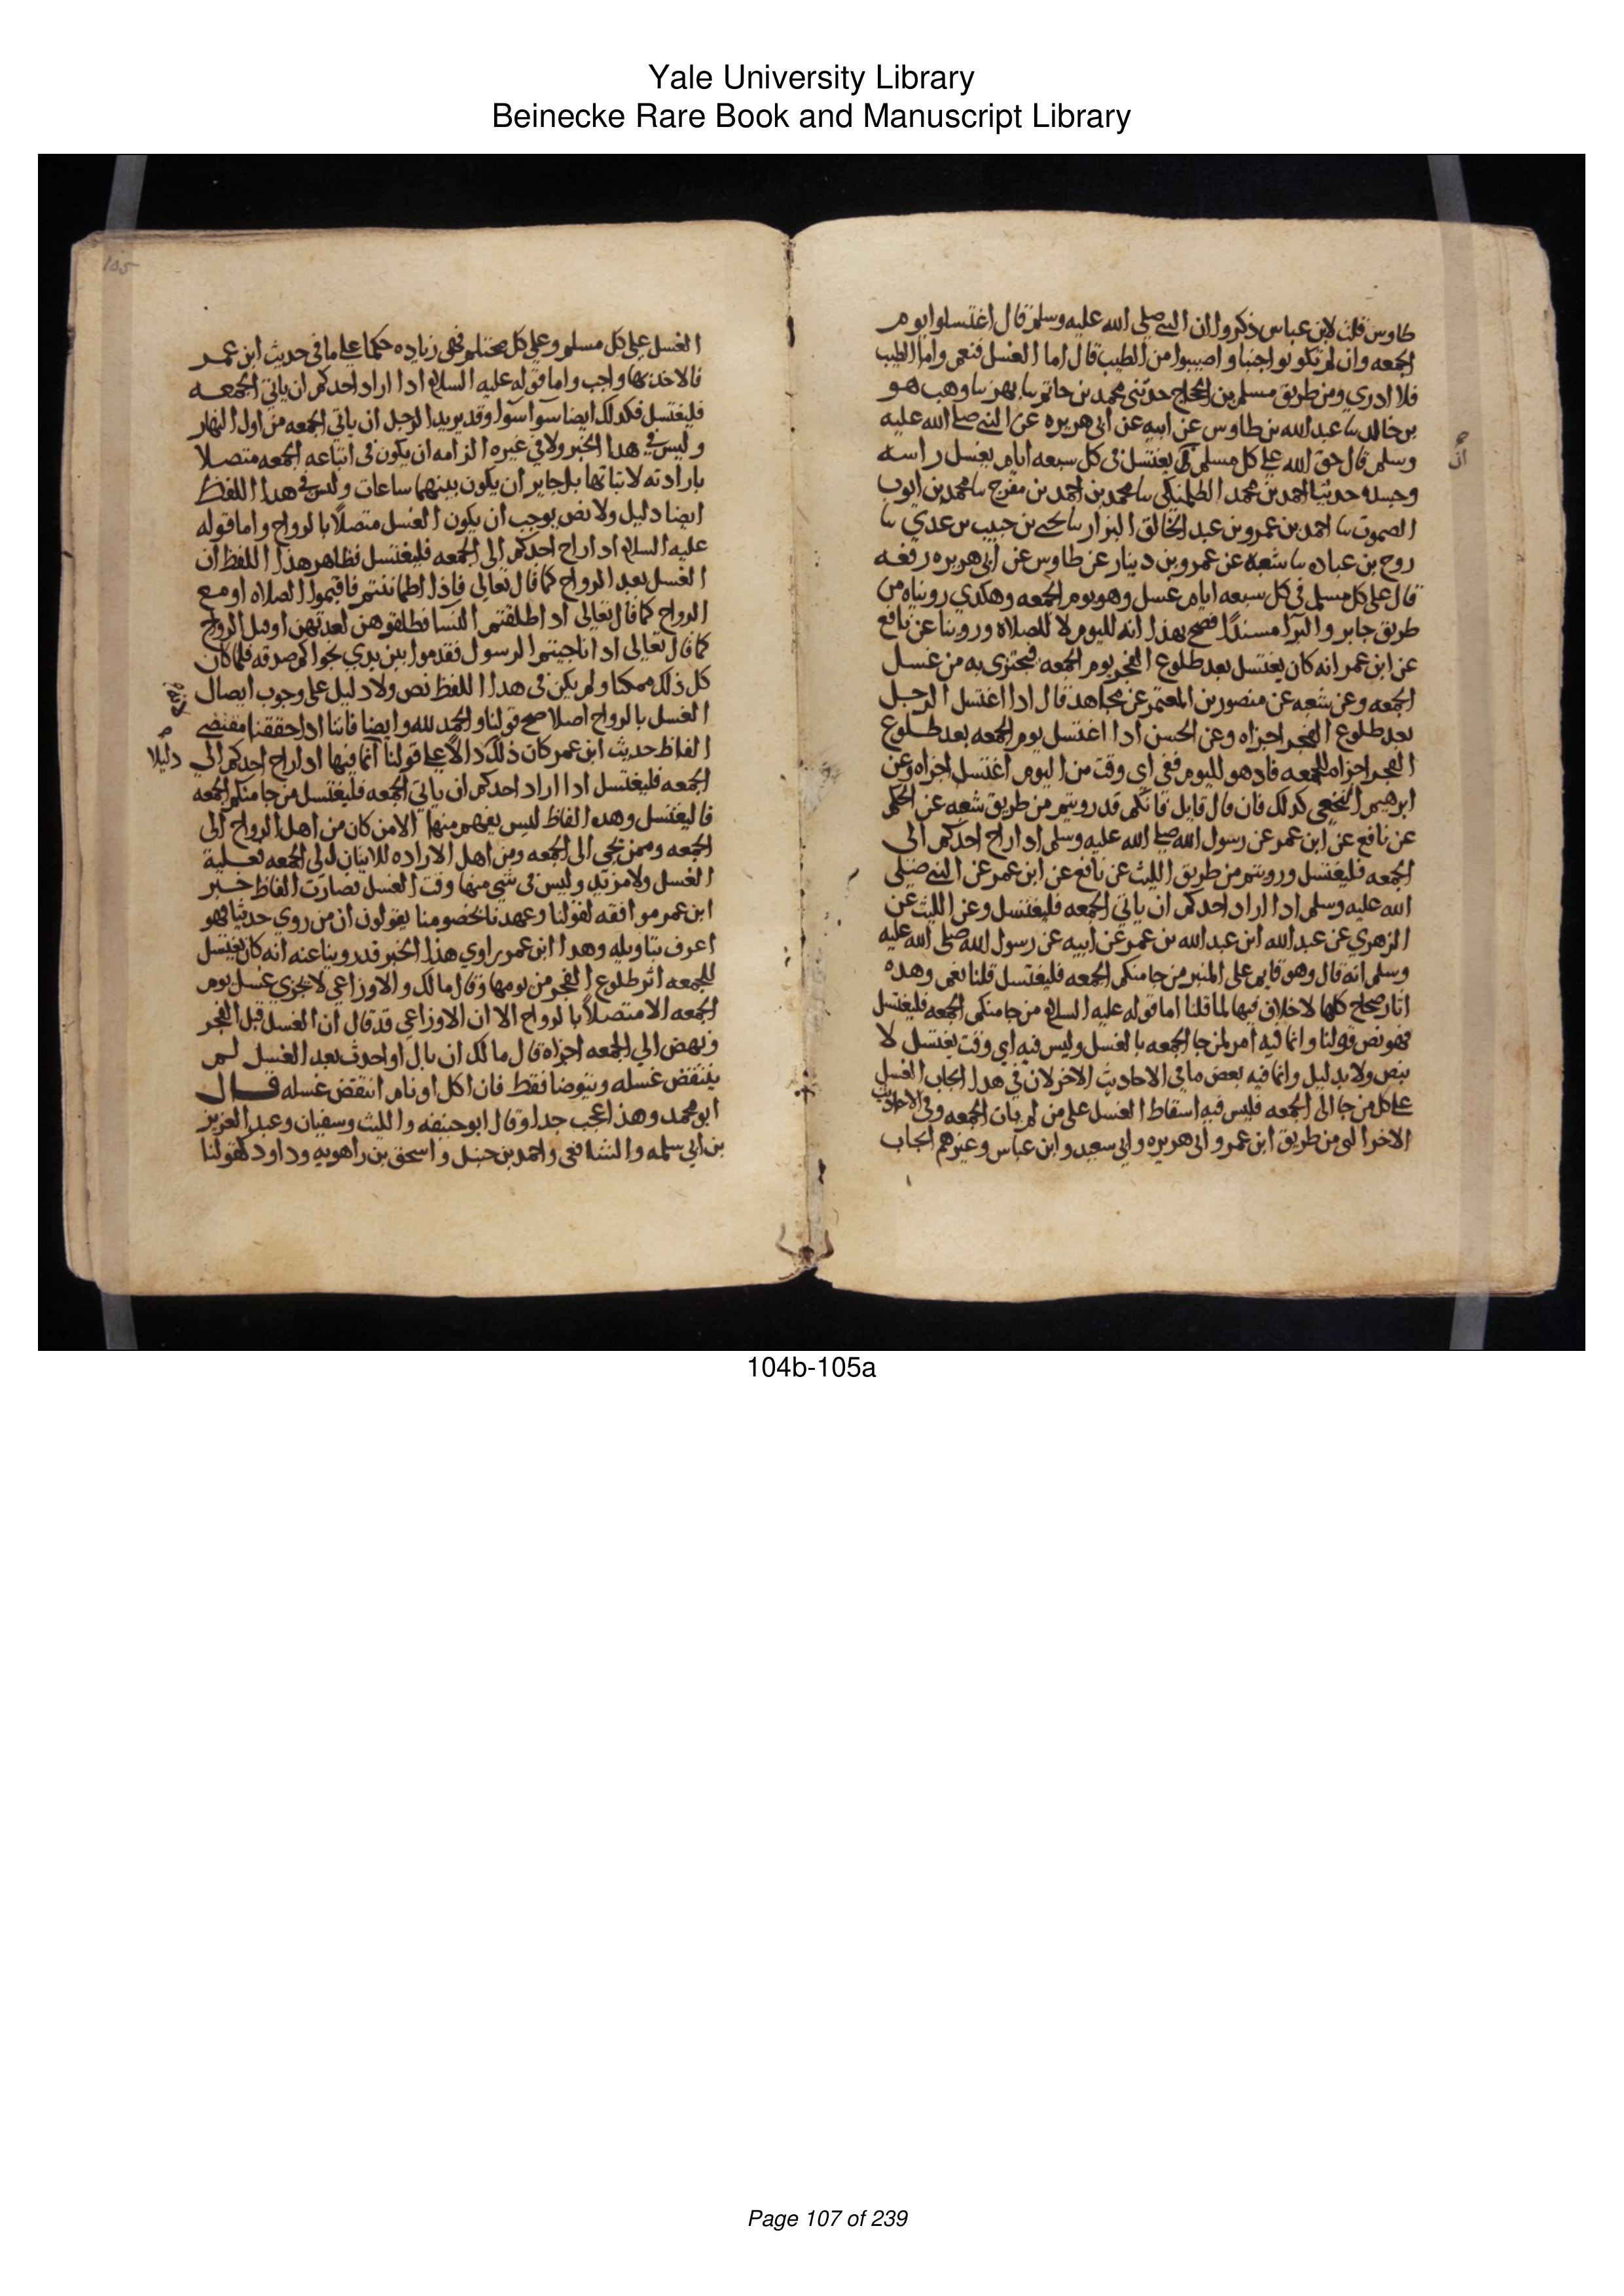 Yale University Library
Beinecke Rare Book and Manuscript Library
طاوس قلت لابن عباس ذكروا ان النبي صلي الله عليه وسلم قال اغتسلوا يوم
الجمعه وان لم تكونوا جنبا واصيبوا من الطيب قال اما الغسل فنعم واما الطيب
فلا ادري ومن طريق مسلم بن الحجاج حدثني محمد بن حاتم سا بهز سا وهب هو
بن خالد سا عبد الله بن طاوس عن ابيه عن ابي هريره عن النبي صلي الله عليه
وسلم قال حق الله علي كل مسلم ان يغتسل في كل سبعه ايام يغسل راسه
ان
وجسده حدثنا احمد بن محمد الطلمنكي سا محمد بن احمد بن مفرج سا محمد بن ايوب
الصموت سا احمد بن عمرو بن عبد الخالق البزار سا يحيي بن حبيب بن عدي سا
روح بن عباده سا شعبه عن عمرو بن دينار عن طاوس عن ابي هريره رفعه
قال علي كل مسلم في كل سبعه ايام غسل وهو يوم الجمعه وهكذي رويناه من
طريق جابر والبرا مسندا فصح بهذا انه لليوم لا للصلاه وروينا عن نافع
عن ابن عمر انه كان يغتسل بعد طلوع الفجر يوم الجمعه فيجتزي به من غسل
الجمعه وعن شعبه عن منصور بن المعتمر عن مجاهد قال ادا اغتسل الرجل
بعد طلوع الفجر اجزاه وعن الحسن ادا اغتسل يوم الجمعه بعد طلوع
الفجر اجزاه للجمعه فاد هو لليوم ففي اي وقت من اليوم اغتسل اجزاه وعن
ابرهيم النخعي كدلك فان قال قايل فانكم قد رويتم من طريق شعبه عن الحكم
عن نافع عن ابن عمر عن رسول الله صلي الله عليه وسلم ادا راح احدكم الى
الجمعه فليغتسل ورويتم من طريق الليث عن نافع عن ابن عمر عن النبي صلي
الله عليه وسلم ادا اراد احدكم ان ياتي الجمعه فليغتسل وعن الليث عن
الزهري عن عبد الله ابن عبد الله بن عمر عن ابيه عن رسول الله صلي الله عليه
وسلم انه قال وهو قايم على المنبر من جا منكم الجمعه فليغتسل قلنا نعم وهده
اثار صحاح كلها لا خلاف فيها لما قلنا اما قوله عليه السلام من جا منكم الجمعه فليغتسل
فهو نص قولنا وانما فيه امر لمن جا الجمعه بالغسل وليس فيه اي وقت يغتسل لا
بنص ولا بدليل وانما فيه بعض ما في الاحاديث الاخر لان في هدا ايجاب الغسل
علي كل من جا الى الجمعه فليس فيه اسقاط الغسل على من لم يات الجمعه وفي الاحاديث
الاخر التي من طريق ابن عمر وابي هريره وابي سعيد وابن عباس وغيرهم ايجاب
105
الغسل على كل مسلم وعلي كل محتلم فهي زياده حكما علي ما في حديث ابن عمر
فالاخذ بها واجب واما قوله عليه السلام ادا اراد احدكم ان ياتي الجمعه
فليغتسل فكدلك ايضا سوا سوا وقد يريد الرجل ان ياتي الجمعه من اول النهار
وليس في هدا الخبر ولا في غيره الزامه ان يكون في اتيانه الجمعه متصلا
بارادته لاتيانها بل جاير ان يكون بينهما ساعات وليس في هدا اللفظ
ايضا دليل ولا نص يوجب ان يكون الغسل متصلا بالرواح واما قوله
عليه السلام ادا راح احدكم الى الجمعه فليغتسل فظاهر هذا اللفظ ان
الغسل بعد الرواح كما قال تعالي فاذا اطماننتم فاقيموا الصلاه او مع
الرواح كما قال تعالى ادا طلقتم النسا فطلقوهن لعدتهن او قبل الرواح
كما قال تعالى ادا ناجيتم الرسول فقدموا بين يدي نجواكم صدقه فلما كان
كل ذلك ممكنا ولم يكن في هدا اللفظ نص ولا دليل على وجوب ايصال
الغسل بالرواح اصلا صح قولنا والحمد لله وايضا فاننا ادا حققنا مقتضي
الفاظ حديث ابن عمر كان ذلك دالا علي قولنا انما فيها ادا راح احدكم الي
دليلا
الجمعه فليغتسل ادا اراد احدكم ان ياتي الجمعه فليغتسل من جا منكم الجمعه
فاليغتسل وهده الفاظ ليس يفهم منها الا من كان من اهل الرواح الى
الجمعه وممن يجي الى الجمعه ومن اهل الاراده للاتيان الى الجمعه فعليه
الغسل ولا مزيد وليس في شي منها وقت الغسل فصارت الفاظ خبر
ابن عمر موافقه لقولنا وعهدنا بخصومنا يقولون ان من روي حديثا فهو
اعرف بتاويله وهدا ابن عمر راوي هذا الخبر قد روينا عنه انه كان يغتسل
للجمعه اثر طلوع الفجر من يومها وقال مالك والاوزاعي لا يجزي غسل يوم
الجمعه الا متصلا بالرواح الا ان الاوزاعي قد قال ان الغسل قبل الفجر
ونهض الي الجمعه اجزاه قال مالك ان بال او احدث بعد الغسل لم
ينتقض غسله ويتوضا فقط فان اكل او نام انتقض غسله قال
ابو محمد وهذا عجب جدا وقال ابو حنيفه والليث وسفيان وعبد العزيز
بن ابي سلمه والشافعي واحمد بن حنبل واسحق بن راهويه وداود كقولنا
104b-105a
Page 107 of 239